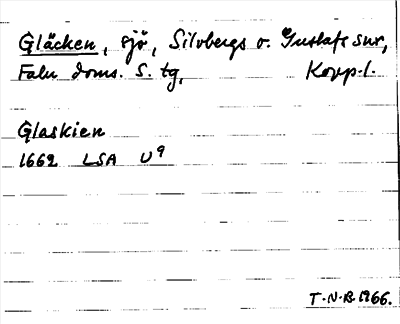 Gläcken, sjö, Silvbergs o. Gustafs snr,
Falu doms. S. tg, Kopp.l.
Glaskien
1662 LSA U9
T.N.R. 1966.